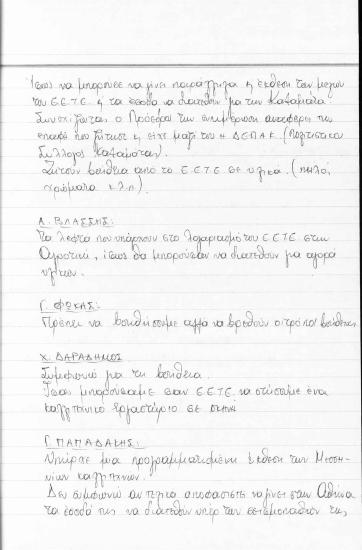 Ίσως να μπορούσε να γίνει παράλληλα η έκθεση των μελών
του Ε.Ε.Τ.Ε. η τα έσοδα να διατεθούν για την Καλαμάτα.
Συνεχίζοντας ο Πρόεδρος την ενημέρωση αναφέρει την
επαφή που ζήτησε η είχε μαζί του η ΔΕΠΑΚ (Πολιτιστικοί
Σύλλογοι Καλαμάτας).
Ζητούν βοήθεια από το Ε.Ε.Τ.Ε. σε υλικά. (πηλό,
χρώματα κ.λ.π.)
Α. ΒΛΑΣΣΗΣ:
Τα λεφτά που υπάρχουν στο λογαριασμό του Ε.Ε.Τ.Ε. στην
Αγροτική, ίσως θα μπορούσαν να διατεθούν για αγορά
υλικών.
Γ. ΦΩΚΑΣ:
Πρέπει να βοηθήσουμε αλλά να βρεθούν οι τρόποι βοήθειας
Χ. ΔΑΡΑΔΗΜΟΣ
Συμφωνώ για τη βοήθεια.
Ίσως μπορούσαμε σαν Ε.Ε.Τ.Ε. να στήσουμε ένα
καλλιτεχνικό εργαστήριο σε σκηνή
Γ. ΠΑΠΑΔΑΚΗΣ:
Υπήρξε μια προγραμματισμένη έκθεση των Μεσση-
νίων καλλιτεχνών.
Δεν συμφωνώ αν τελικά αποφασιστεί να γίνει στην Αθήνα
τα έσοδά της να διατεθούν υπέρ των σεισμοπαθών της,